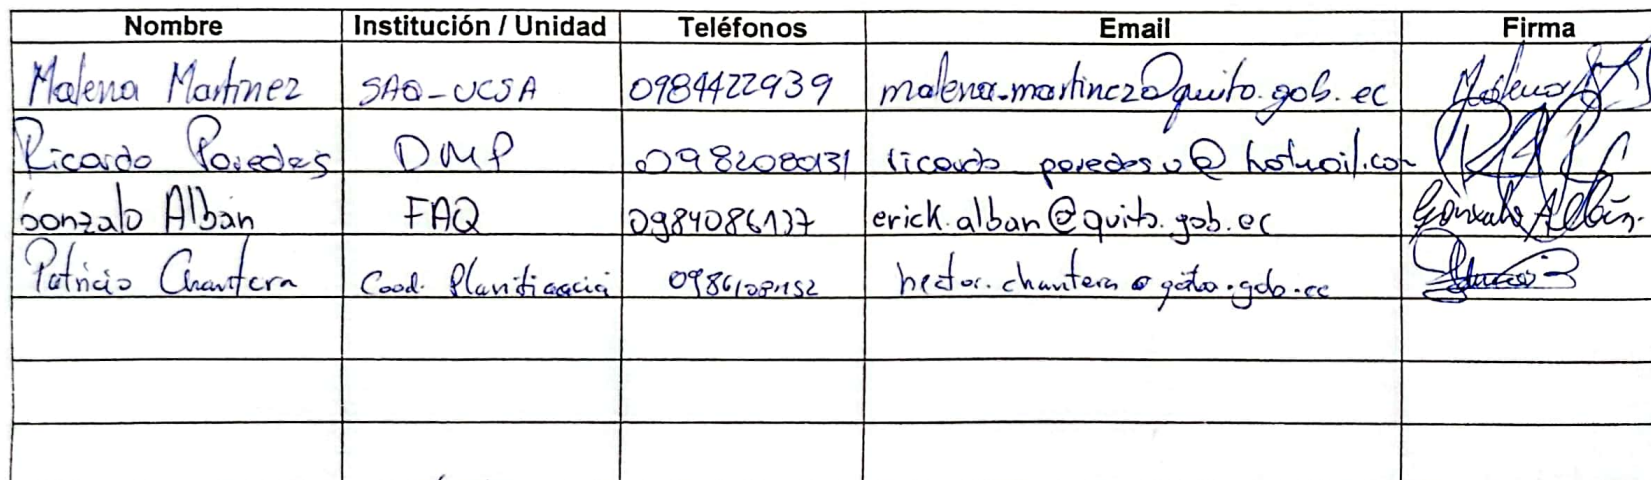 Nombre Institución / Unidad Teléfonos Email Firma
Malena Martinez SAQ-UCSA 0984422939 malena.martinez@quito.gob.ec
Ricardo Paredes DMP 0982080131 ricardo paredes u@hotmail.com
Gonzalo Albán FAQ 0984086137 erick.alban@quito.gob.ec Gonzalo Albán
Patricio Chantera Cood. Planificació hector.chantera@quito.gob.ec